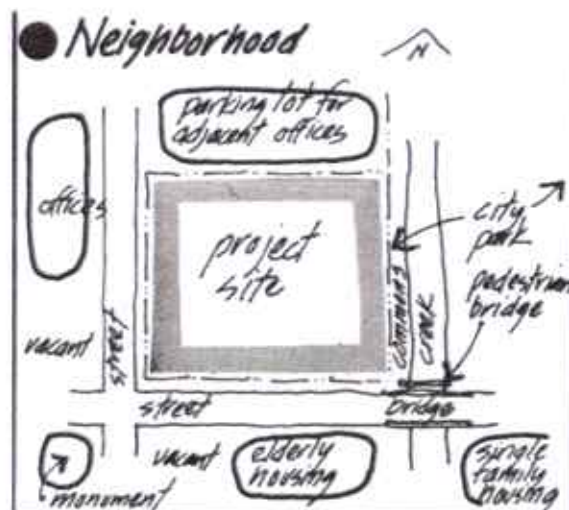 Neighborhood
N
parking lot for
adjacent offices
offices
project
site
city
park
pedestrian
bridge
commons
creek
vacant
street
street
bridge
vacant
elderly
housing
single
family
housing
monument